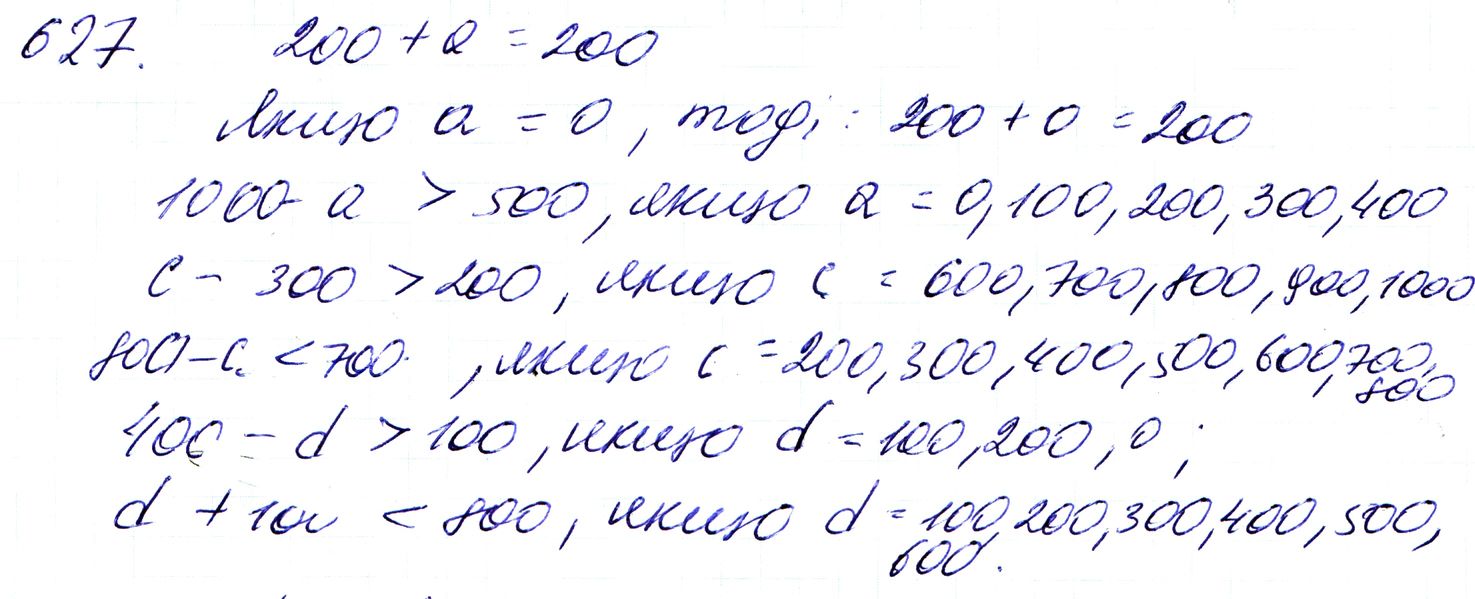 627. 200 + a = 200
Якщо a = 0, тоді: 200 + 0 = 200
1000 - a > 500, якщо a = 0, 100, 200, 300, 400
c - 300 > 200, якщо c = 600, 700, 800, 900, 1000
800 - c < 700, якщо c = 200, 300, 400, 500, 600, 700,
800
400 - d > 100, якщо d = 100, 200, 0;
d + 100 < 800, якщо d = 100, 200, 300, 400, 500,
600.